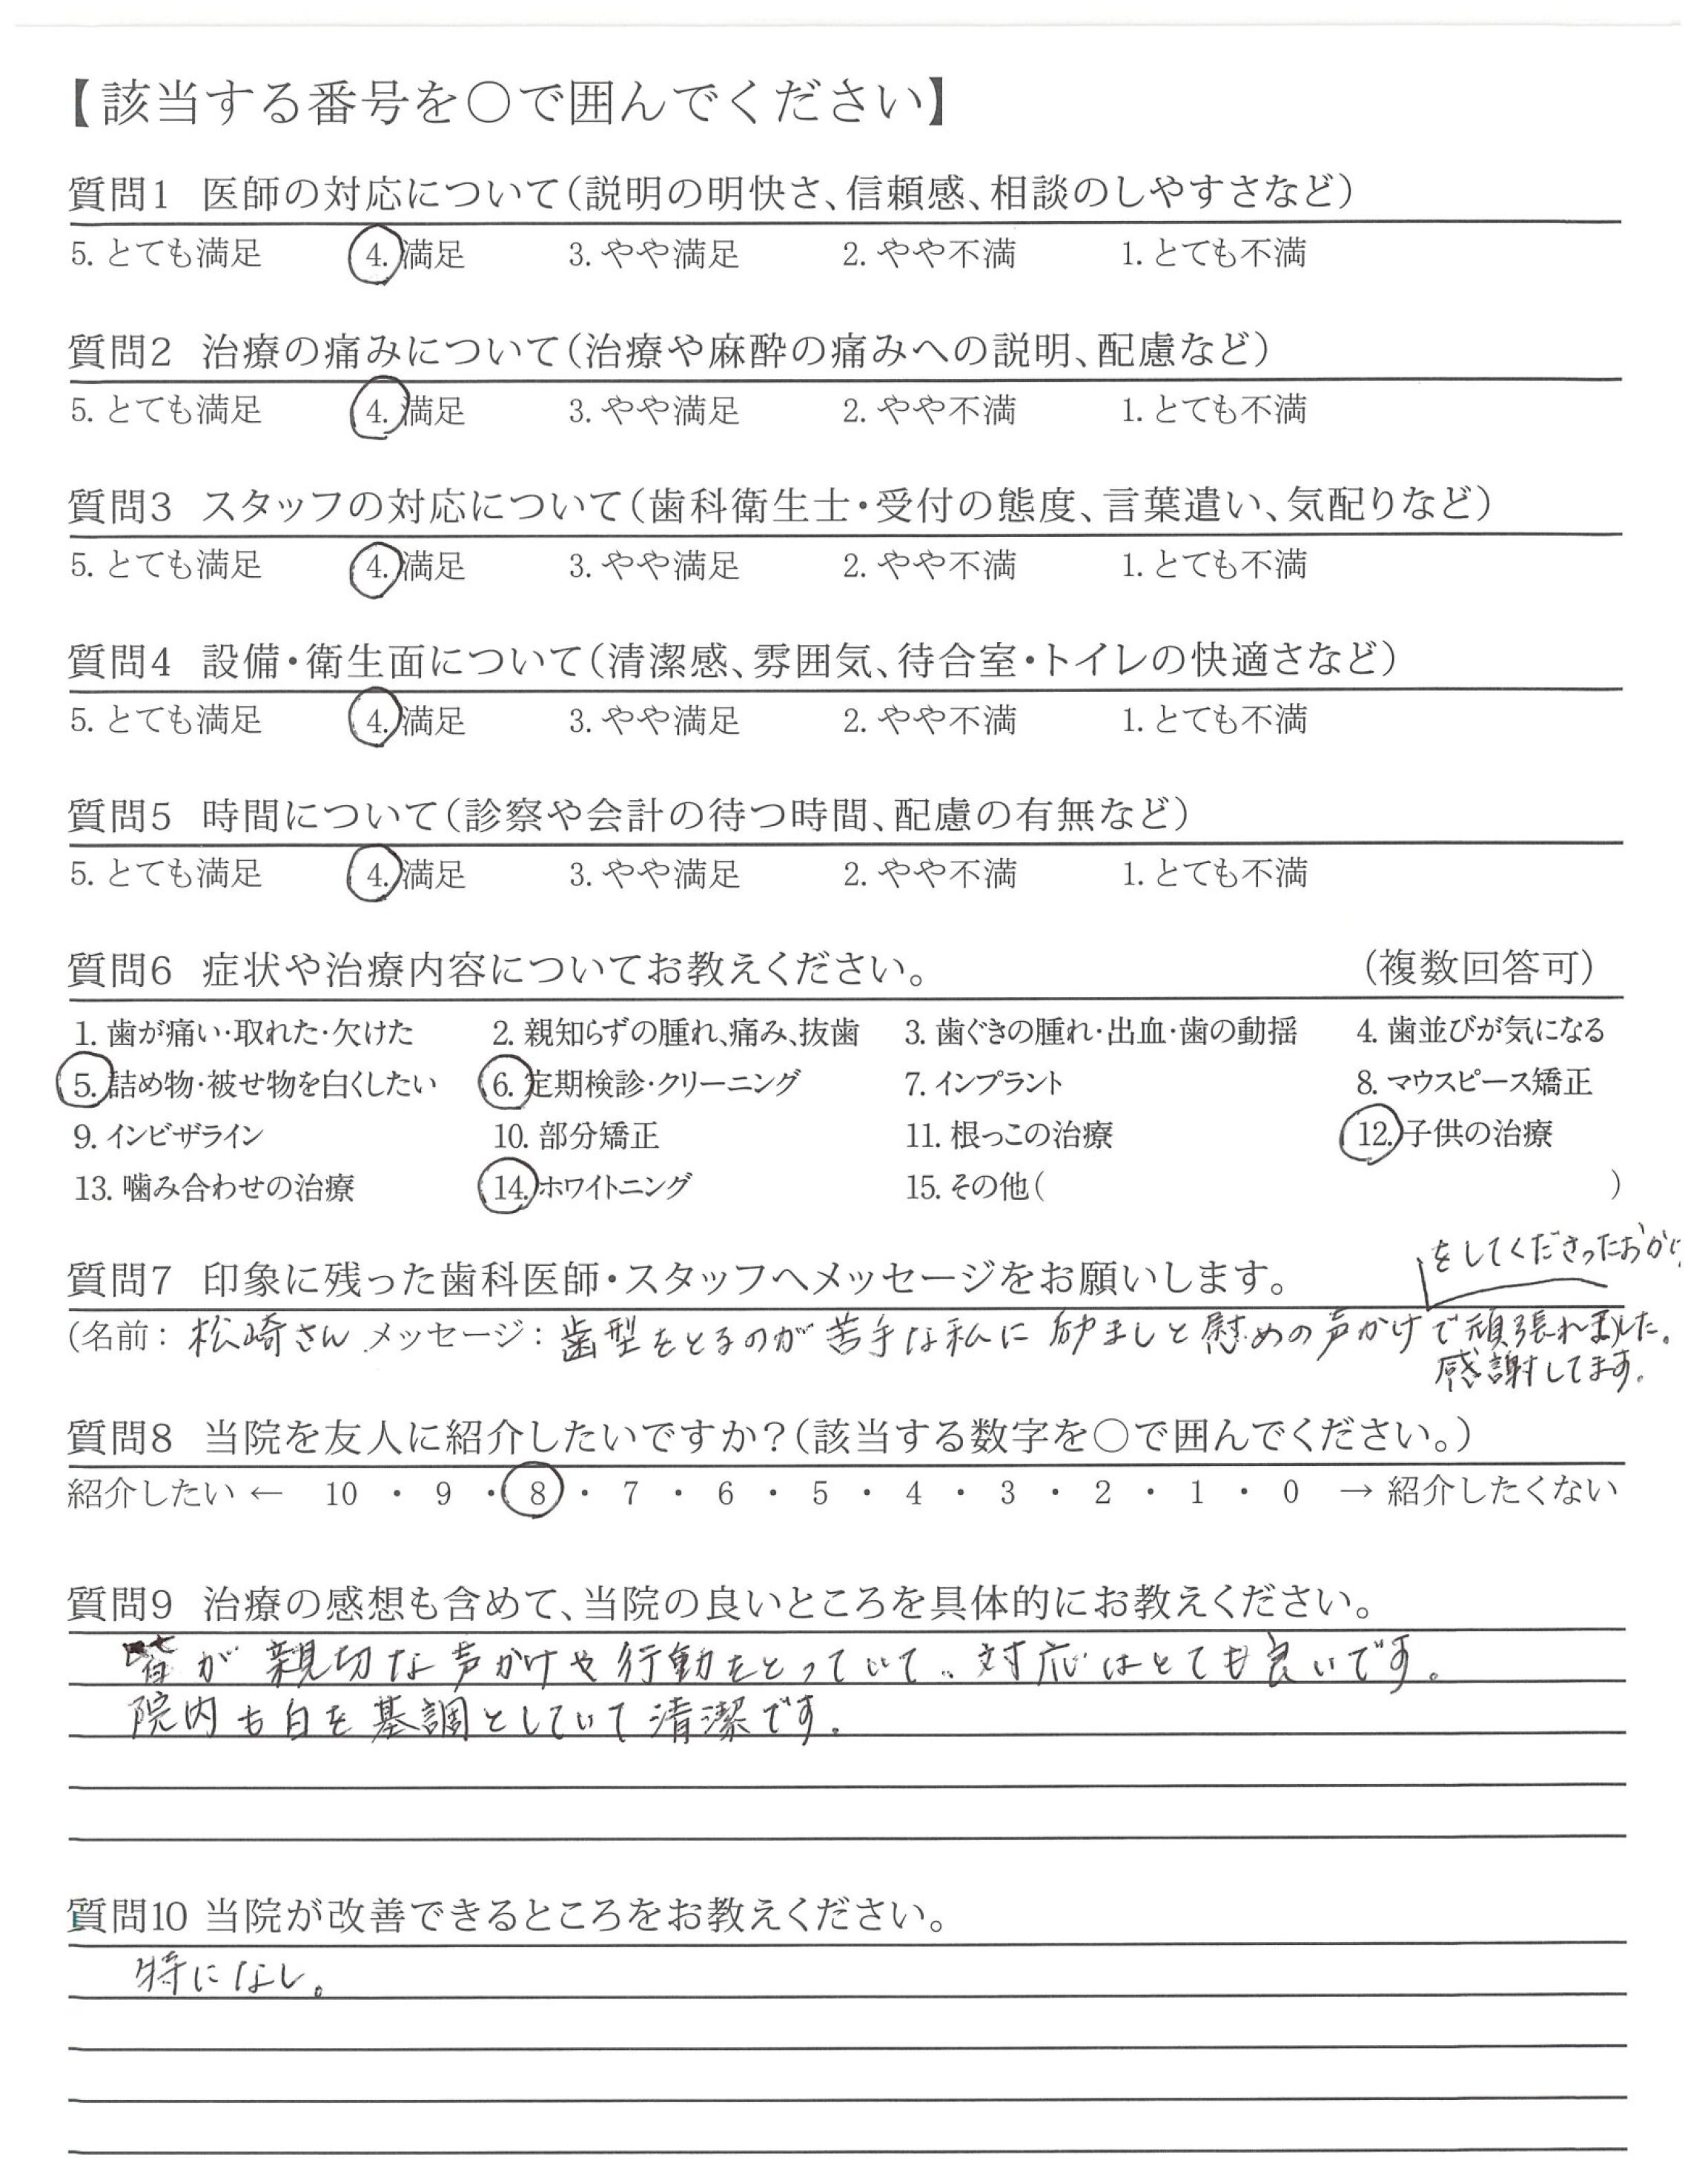 【該当する番号を〇で囲んでください】
質問1 医師の対応について(説明の明快さ、信頼感、相談のしやすさなど)
5. とても満足 4. 満足 3. やや満足 2. やや不満 1. とても不満
質問2 治療の痛みについて(治療や麻酔の痛みへの説明、配慮など)
5. とても満足 4. 満足 3. やや満足 2. やや不満 1. とても不満
質問3 スタッフの対応について(歯科衛生士・受付の態度、言葉遣い、気配りなど)
5. とても満足 4. 満足 3. やや満足 2. やや不満 1. とても不満
質問4 設備・衛生面について(清潔感、雰囲気、待合室・トイレの快適さなど)
5. とても満足 4. 満足 3. やや満足 2. やや不満 1. とても不満
質問5 時間について(診察や会計の待つ時間、配慮の有無など)
5. とても満足 4. 満足 3. やや満足 2. やや不満 1. とても不満
質問6 症状や治療内容についてお教えください。 (複数回答可)
1. 歯が痛い・取れた・欠けた 2. 親知らずの腫れ、痛み、抜歯 3. 歯ぐきの腫れ・出血・歯の動揺 4. 歯並びが気になる
5. 詰め物・被せ物を白くしたい 6. 定期検診・クリーニング 7. インプラント 8. マウスピース矯正
9. インビザライン 10. 部分矯正 11. 根っこの治療 12. 子供の治療
13. 噛み合わせの治療 14. ホワイトニング 15. その他( )
質問7 印象に残った歯科医師・スタッフへメッセージをお願いします。
をしてくださったおか
(名前: 松崎さん メッセージ: 歯型をとるのが苦手な私に励ましと慰めの声かけで頑張れました。
感謝してます。
質問8 当院を友人に紹介したいですか?(該当する数字を〇で囲んでください。)
紹介したい ← 10 ・ 9 ・ 8 ・ 7 ・ 6 ・ 5 ・ 4 ・ 3 ・ 2 ・ 1 ・ 0 → 紹介したくない
質問9 治療の感想も含めて、当院の良いところを具体的にお教えください。
皆が親切な声かけや行動をとっていて、対応はとても良いです。
院内も白を基調としていて清潔です。
質問10 当院が改善できるところをお教えください。
特になし。